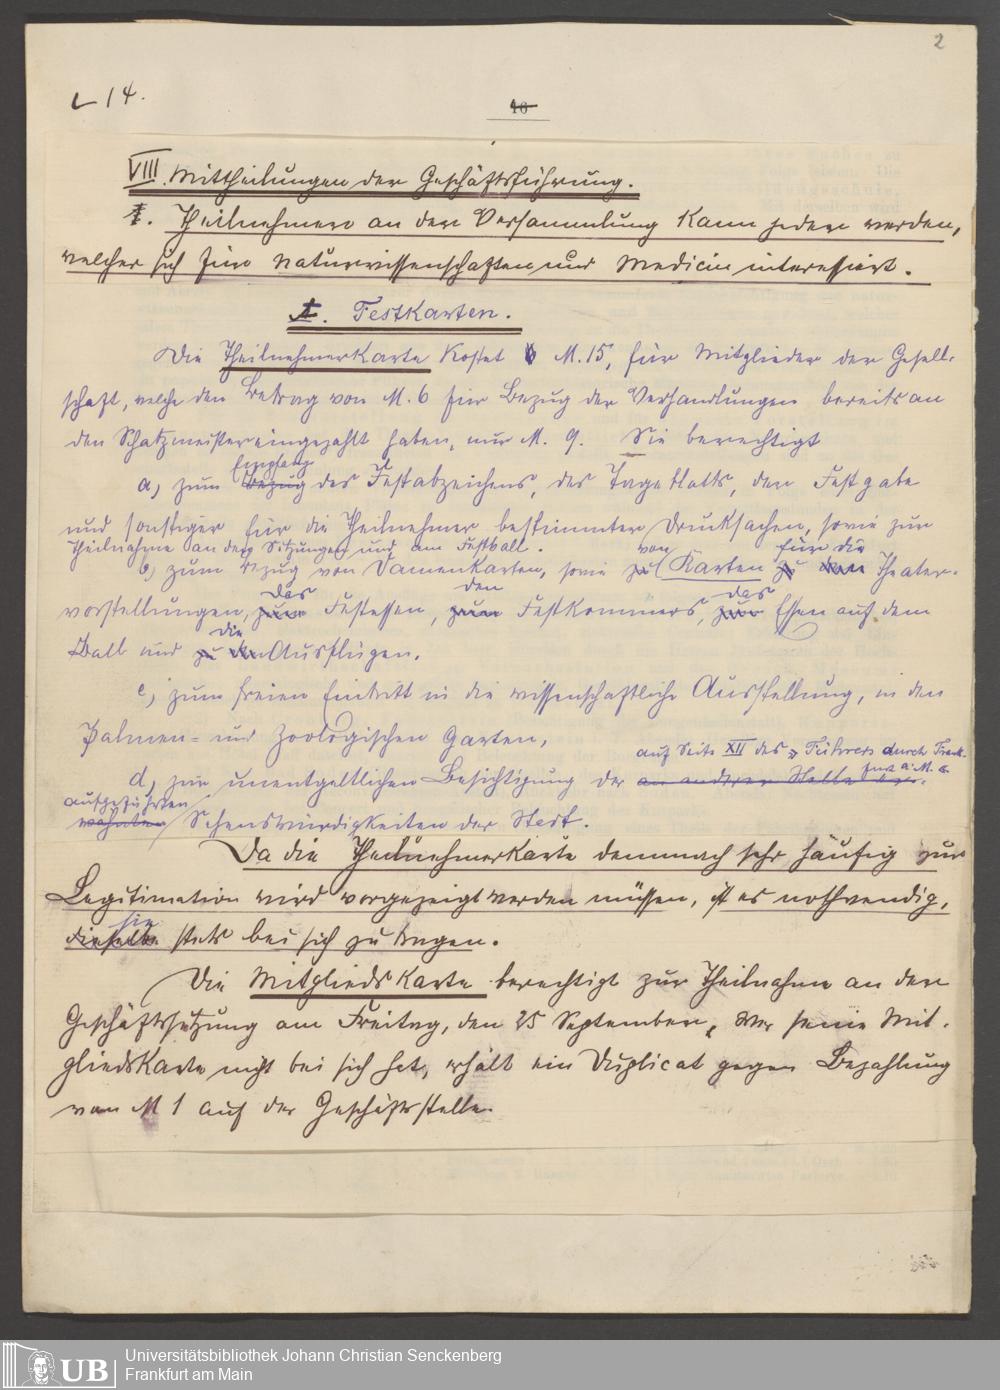 2
L 14.
16
VIII. Mittheilungen der Geschäftsführung.
I. Theilnehmer an der Versammlung kann jeder werden,
welcher sich für Naturwissenschaften und Medicin interessirt.
I. Festkarten.
Die Theilnehmerkarte kostet M. 15, für Mitglieder der Gesell-
schaft, welche den Betrag von M. 6 für Bezug der Verhandlungen bereits an
den Schatzmeister eingezahlt haben, nur M. 9. Sie berechtigt
Empfang
a) zum Bezug des Festabzeichens, des Tageblatts, der Festgabe
und sonstiger für die Theilnehmer bestimmter Drucksachen, sowie zur
Theilnahme an den Sitzungen und am Festball.
von für die
b) zum Bezug von Damenkarten, sowie zu Karten zu den Theater-
das den das
vorstellungen, zum Festessen, zum Festkommers, zum Essen auf dem
die
Ball und zu den Ausflügen.
c) zum freien Eintritt in die wissenschaftliche Ausstellung, in den
Palmen- und Zoologischen Garten,
auf Seite XII des "Führers durch Frank-
furt a. M."
d) zur unentgeltlichen Besichtigung der an anderer Stelle er-
aufgeführten
wähnten Sehenswürdigkeiten der Stadt.
Da die Theilnehmerkarte demnach sehr häufig zur
Legitimation wird vorgezeigt werden müssen, ist es nothwendig,
sie
dieselbe stets bei sich zu tragen.
Die Mitgliedskarte berechtigt zur Theilnahme an der
Geschäftssitzung am Freitag, den 25 September. Wer seine Mit-
gliedskarte nicht bei sich hat, erhält ein Duplicat gegen Bezahlung
von M 1 auf der Geschäftsstelle.
UB
Universitätsbibliothek Johann Christian Senckenberg
Frankfurt am Main